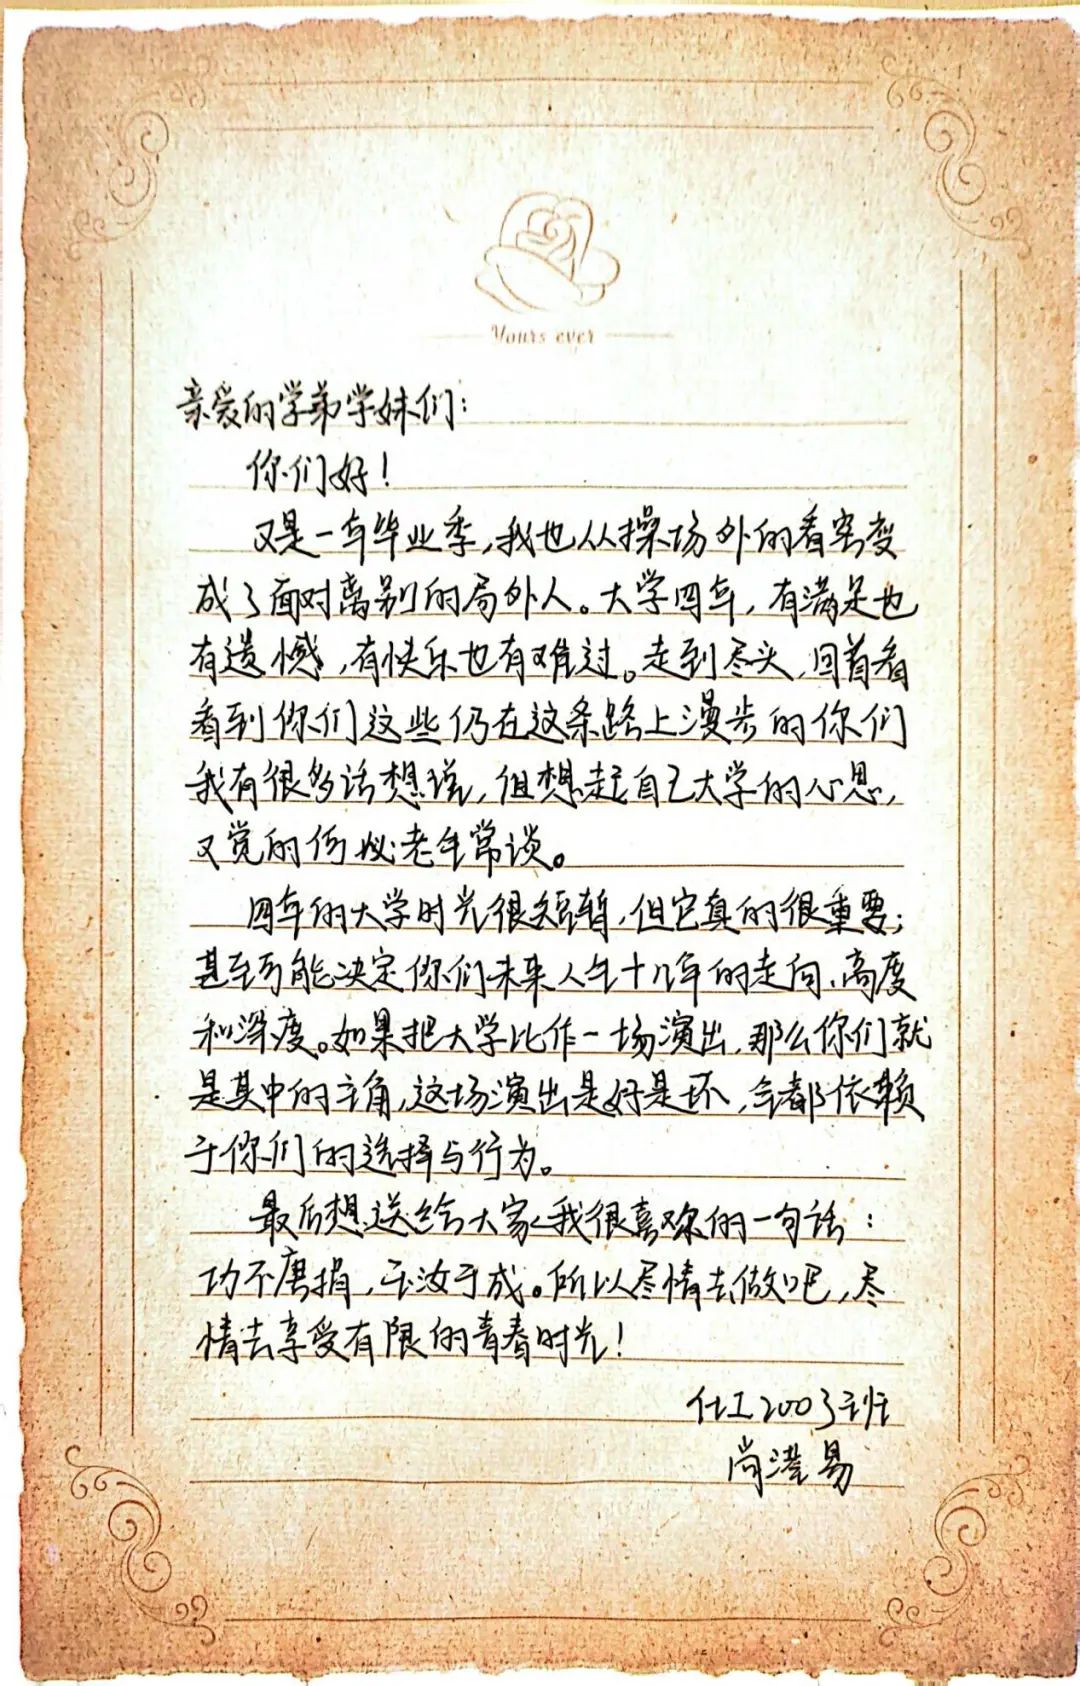 Yours ever
亲爱的学弟学妹们：
你们好！
又是一年毕业季，我也从操场外的看客变
成了面对离别的局外人。大学四年，有满足也
有遗憾，有快乐也有难过。走到尽头，回首看
看到你们这些仍在这条路上漫步的你们
我有很多话想说，但想起自己大学的心思，
又觉的何必老生常谈。
四年的大学时光很短暂，但它真的很重要；
甚至可能决定你们未来人生十几年的走向、高度
和深度。如果把大学比作一场演出，那么你们就
是其中的主角，这场演出是好是坏，全都依赖
于你们的选择与行为。
最后想送给大家我很喜欢的一句话：
功不唐捐，玉汝于成。所以尽情去做吧，尽
情去享受有限的青春时光！
化工2003班
尚滢易